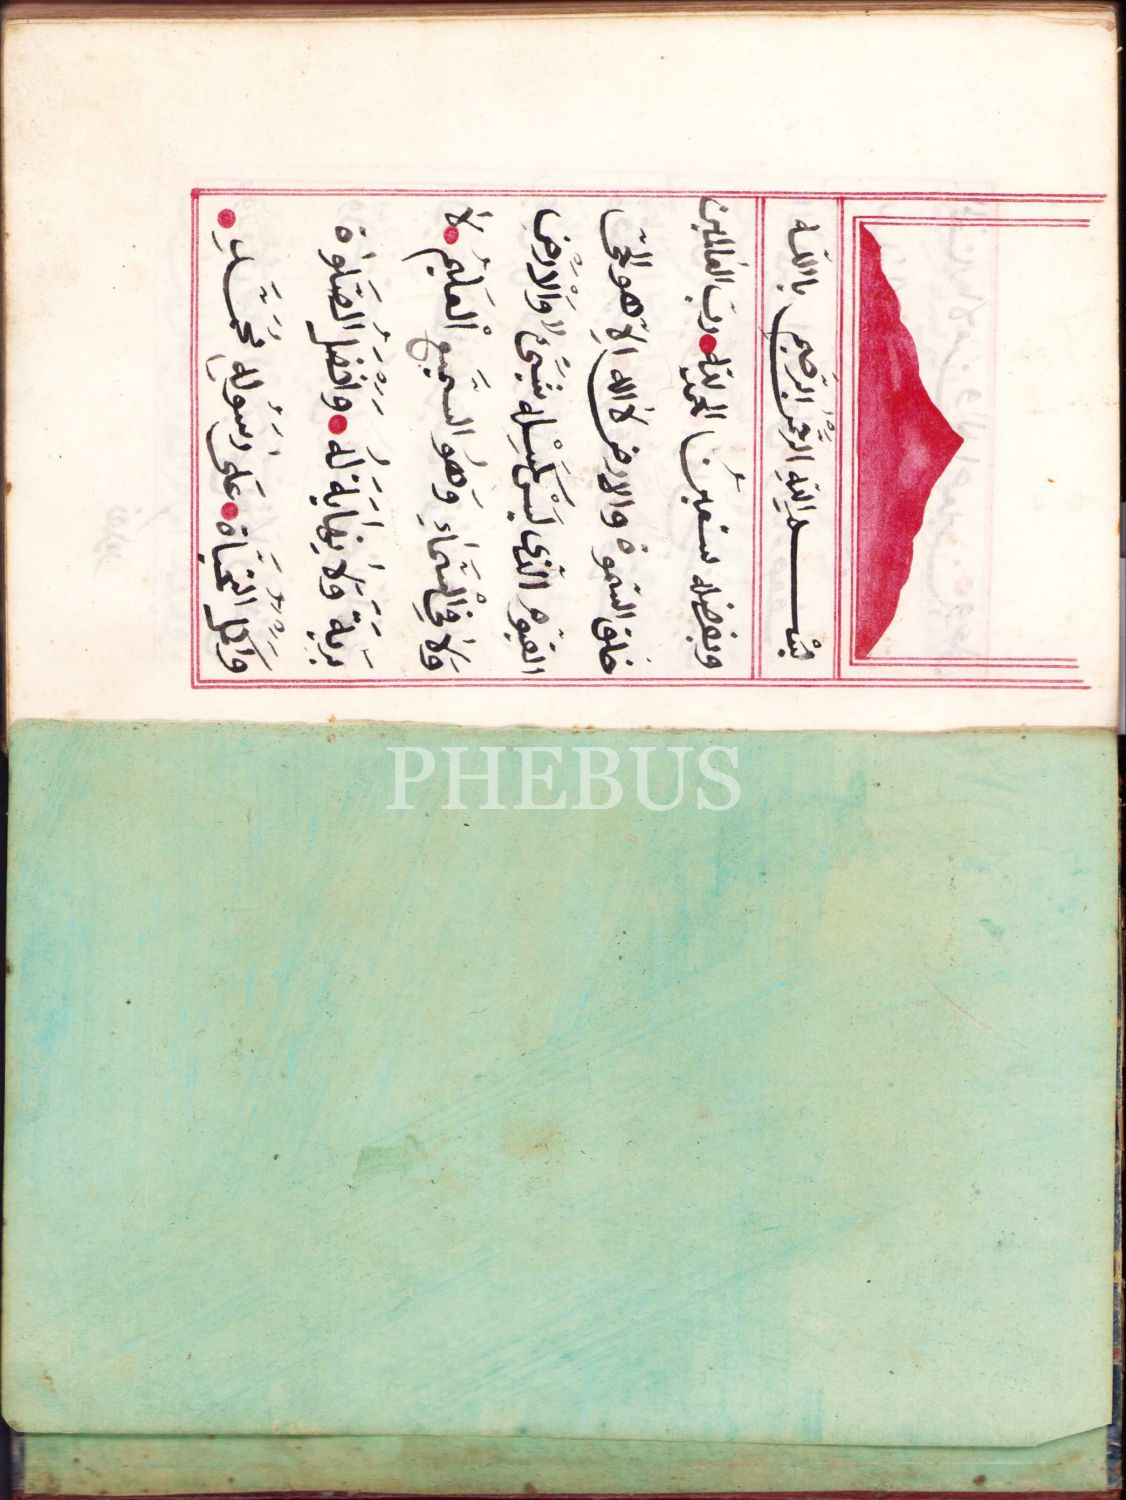 بسم الله الرحمن الرحيم بالله
وبفضله نستعين الحمد لله رب العالمين
خلق السموة والارض لا اله الا هو الحى
القيوم الذى ليس كمثله شئ والارض
ولا فى السماء وهو السميع العليم لا
بداية ولا نهاية له وافضل الصلوة
واكمل التحياة على رسوله محمد
PHEBUS